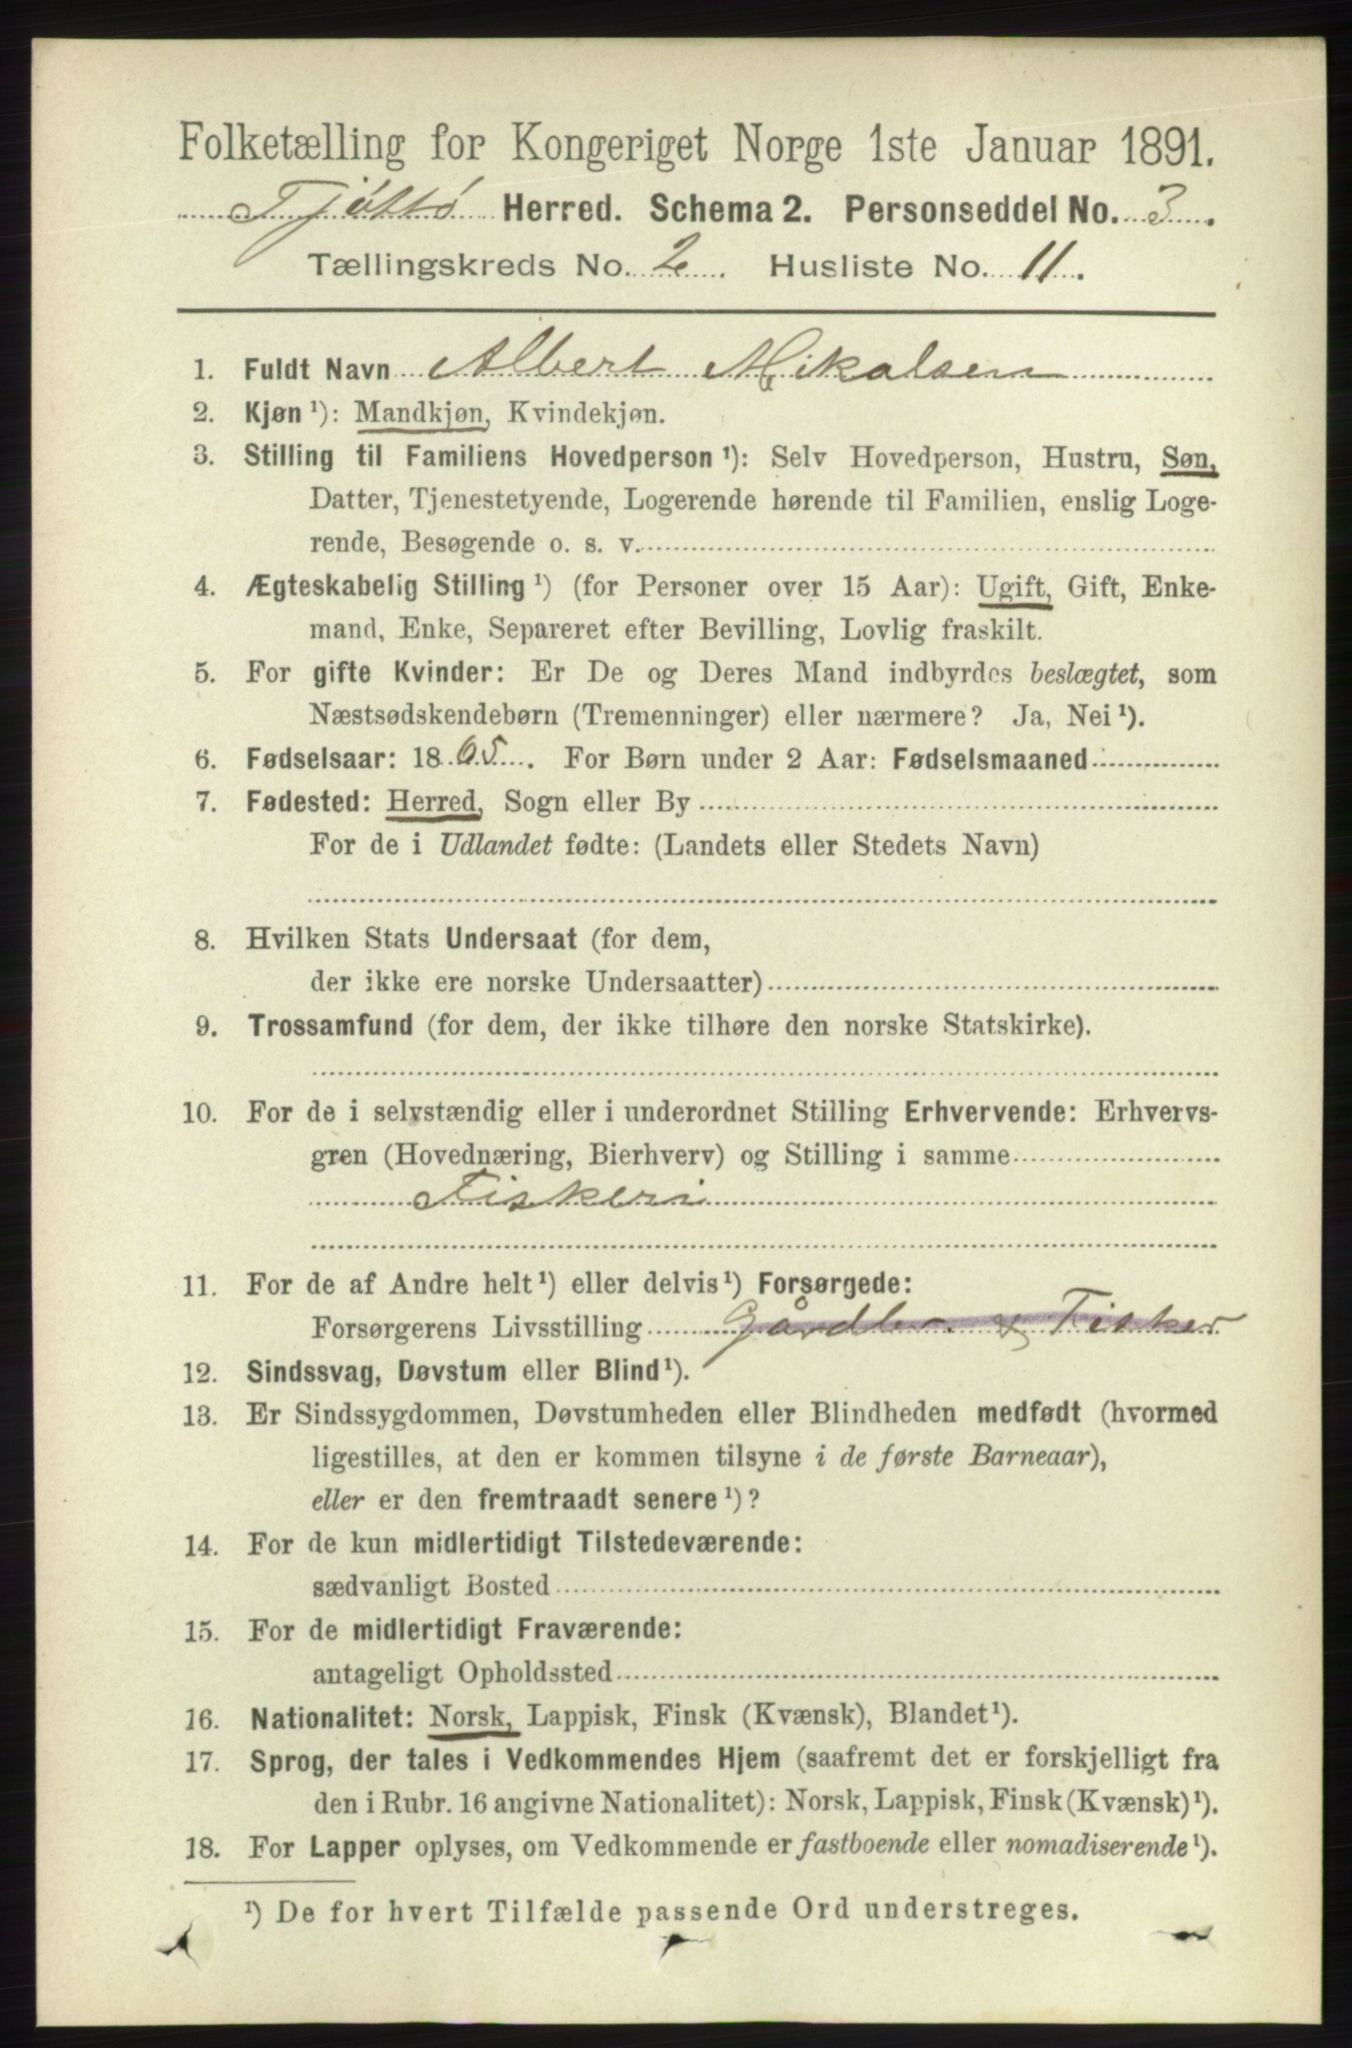 Folketælling for Kongeriget Norge 1ste Januar 1891.
Tjøttø Herred. Schema 2. Personseddel No. 3.
Tællingskreds No. 2. Husliste No. 11.
1. Fuldt Navn Albert Mikalsen
2. Kjøn ¹): Mandkjøn, Kvindekjøn.
3. Stilling til Familiens Hovedperson ¹): Selv Hovedperson, Hustru, Søn,
Datter, Tjenestetyende, Logerende hørende til Familien, enslig Loge-
rende, Besøgende o. s. v.
4. Ægteskabelig Stilling ¹) (for Personer over 15 Aar): Ugift, Gift, Enke-
mand, Enke, Separeret efter Bevilling, Lovlig fraskilt.
5. For gifte Kvinder: Er De og Deres Mand indbyrdes beslægtet, som
Næstsødskendebørn (Tremenninger) eller nærmere? Ja, Nei ¹).
6. Fødselsaar: 1865. For Børn under 2 Aar: Fødselsmaaned
7. Fødested: Herred, Sogn eller By
For de i Udlandet fødte: (Landets eller Stedets Navn)
8. Hvilken Stats Undersaat (for dem,
der ikke ere norske Undersaatter)
9. Trossamfund (for dem, der ikke tilhøre den norske Statskirke).
10. For de i selvstændig eller i underordnet Stilling Erhvervende: Erhvervs-
gren (Hovednæring, Bierhverv) og Stilling i samme
Fiskeri
11. For de af Andre helt ¹) eller delvis ¹) Forsørgede:
Forsørgerens Livsstilling Gårdbr. & Fisker
12. Sindssvag, Døvstum eller Blind ¹).
13. Er Sindssygdommen, Døvstumheden eller Blindheden medfødt (hvormed
ligestilles, at den er kommen tilsyne i de første Barneaar),
eller er den fremtraadt senere ¹)?
14. For de kun midlertidigt Tilstedeværende:
sædvanligt Bosted
15. For de midlertidigt Fraværende:
antageligt Opholdssted
16. Nationalitet: Norsk, Lappisk, Finsk (Kvænsk), Blandet ¹).
17. Sprog, der tales i Vedkommendes Hjem (saafremt det er forskjelligt fra
den i Rubr. 16 angivne Nationalitet): Norsk, Lappisk, Finsk (Kvænsk) ¹).
18. For Lapper oplyses, om Vedkommende er fastboende eller nomadiserende ¹).
¹) De for hvert Tilfælde passende Ord understreges.